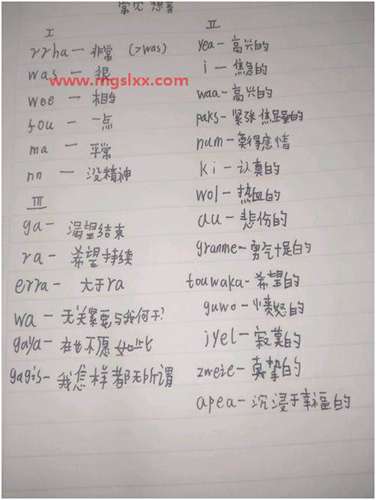 常见想音
I
rrha — 非常 (>was)
was — 很
www.mgslxx.com
wee — 相当
fou — 一点
ma — 平常
nn — 没精神
III
ga — 渴望结束
ra — 希望持续
erra — 大于ra
wa — 无关紧要与我何干?
gaya — 再也不愿如此
gagis — 我怎样都无所谓
II
yea — 高兴的
i — 焦急的
waa — 高兴的
paks — 紧张焦虑的
num — 莫得感情
ki — 认真的
wol — 热血的
au — 悲伤的
granme — 勇气十足的
touwaka — 希望的
guwo — 愤怒的
jyel — 寂寞的
zweie — 真挚的
apea — 沉浸于幸福的